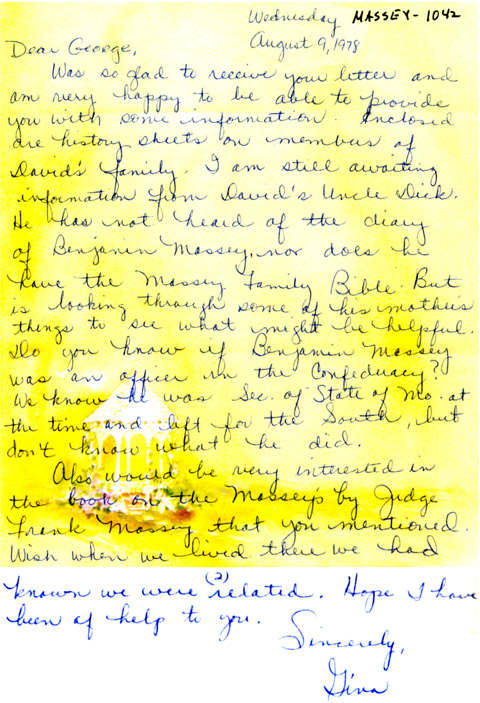 Wednesday MASSEY-1042
August 9, 1978
Dear George,
Was so glad to receive your letter and
am very happy to be able to provide
you with some information. Enclosed
are history sheets on members of
David's family. I am still awaiting
information from David's Uncle Dick.
He has not heard of the diary
of Benjamin Massey, nor does he
have the Massey Family Bible. But
is looking through some of his mothers
things to see what might be helpful.
Do you know if Benjamin Massey
was an officer in the Confederacy?
We know he was Sec. of State of Mo. at
the time and left for the South, but
don't know what he did.
Also would be very interested in
the book on the Masseys by Judge
Frank Massey that you mentioned.
Wish when we lived there we had
(2)
known we were related. Hope I have
been of help to you.
Sincerely,
Gina